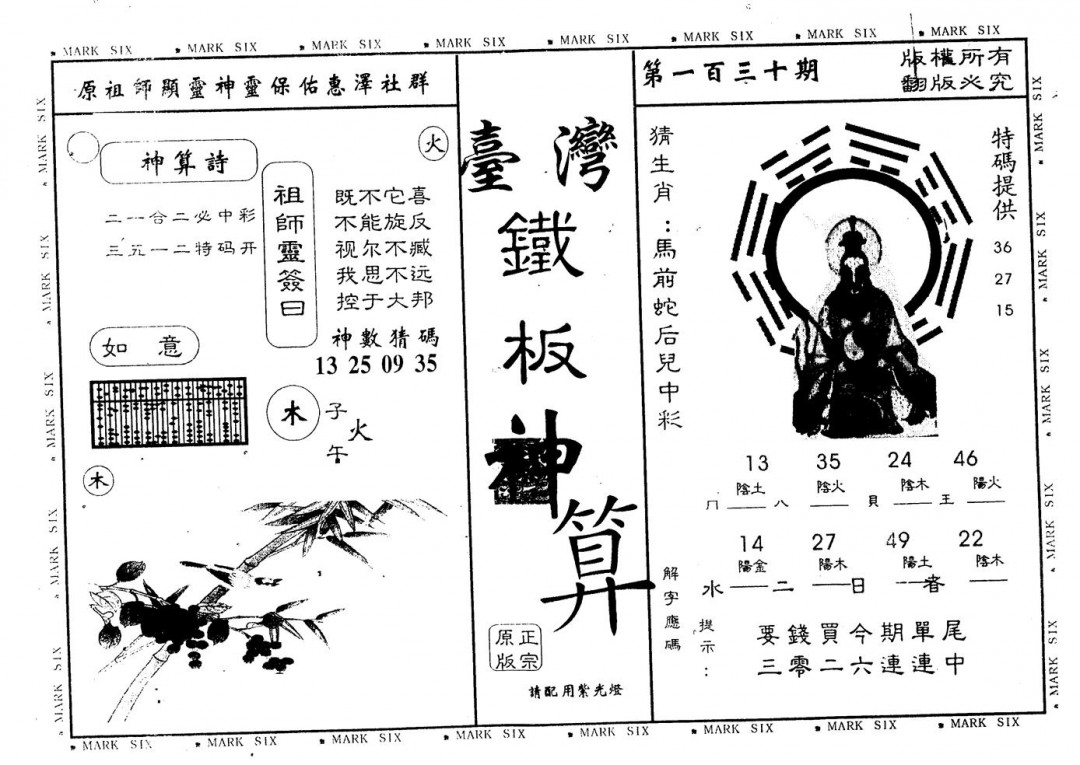 MARK SIX MARK SIX MARK SIX MARK SIX MARK SIX MARK SIX MARK SIX MARK SIX
原祖師顯靈神靈保佑惠澤社群
神算詩
二一合二必中彩
三五一二特码开
火
祖師靈簽曰
既不它喜
不能旋反
视尔不臧
我思不远
控于大邦
神數猜碼
13 25 09 35
如意
木
子
火
午
木
臺灣
鐵
板
神
算
原正
版宗
請配用紫光燈
第一百三十期
版權所有
翻版必究
猜生肖：馬前蛇后兒中彩
特碼提供
36
27
15
13 35 24 46
陰土 陰火 陰木 陽火
八 貝 王
14 27 49 22
陽金 陽木 陽土 陰木
水 二 日 者
解字應碼
提示：
要錢買今期單尾
三零二六連連中
MARK SIX MARK SIX MARK SIX MARK SIX MARK SIX MARK SIX MARK SIX MARK SIX
MARK SIX MARK SIX MARK SIX MARK SIX MARK SIX
MARK SIX MARK SIX MARK SIX MARK SIX MARK SIX